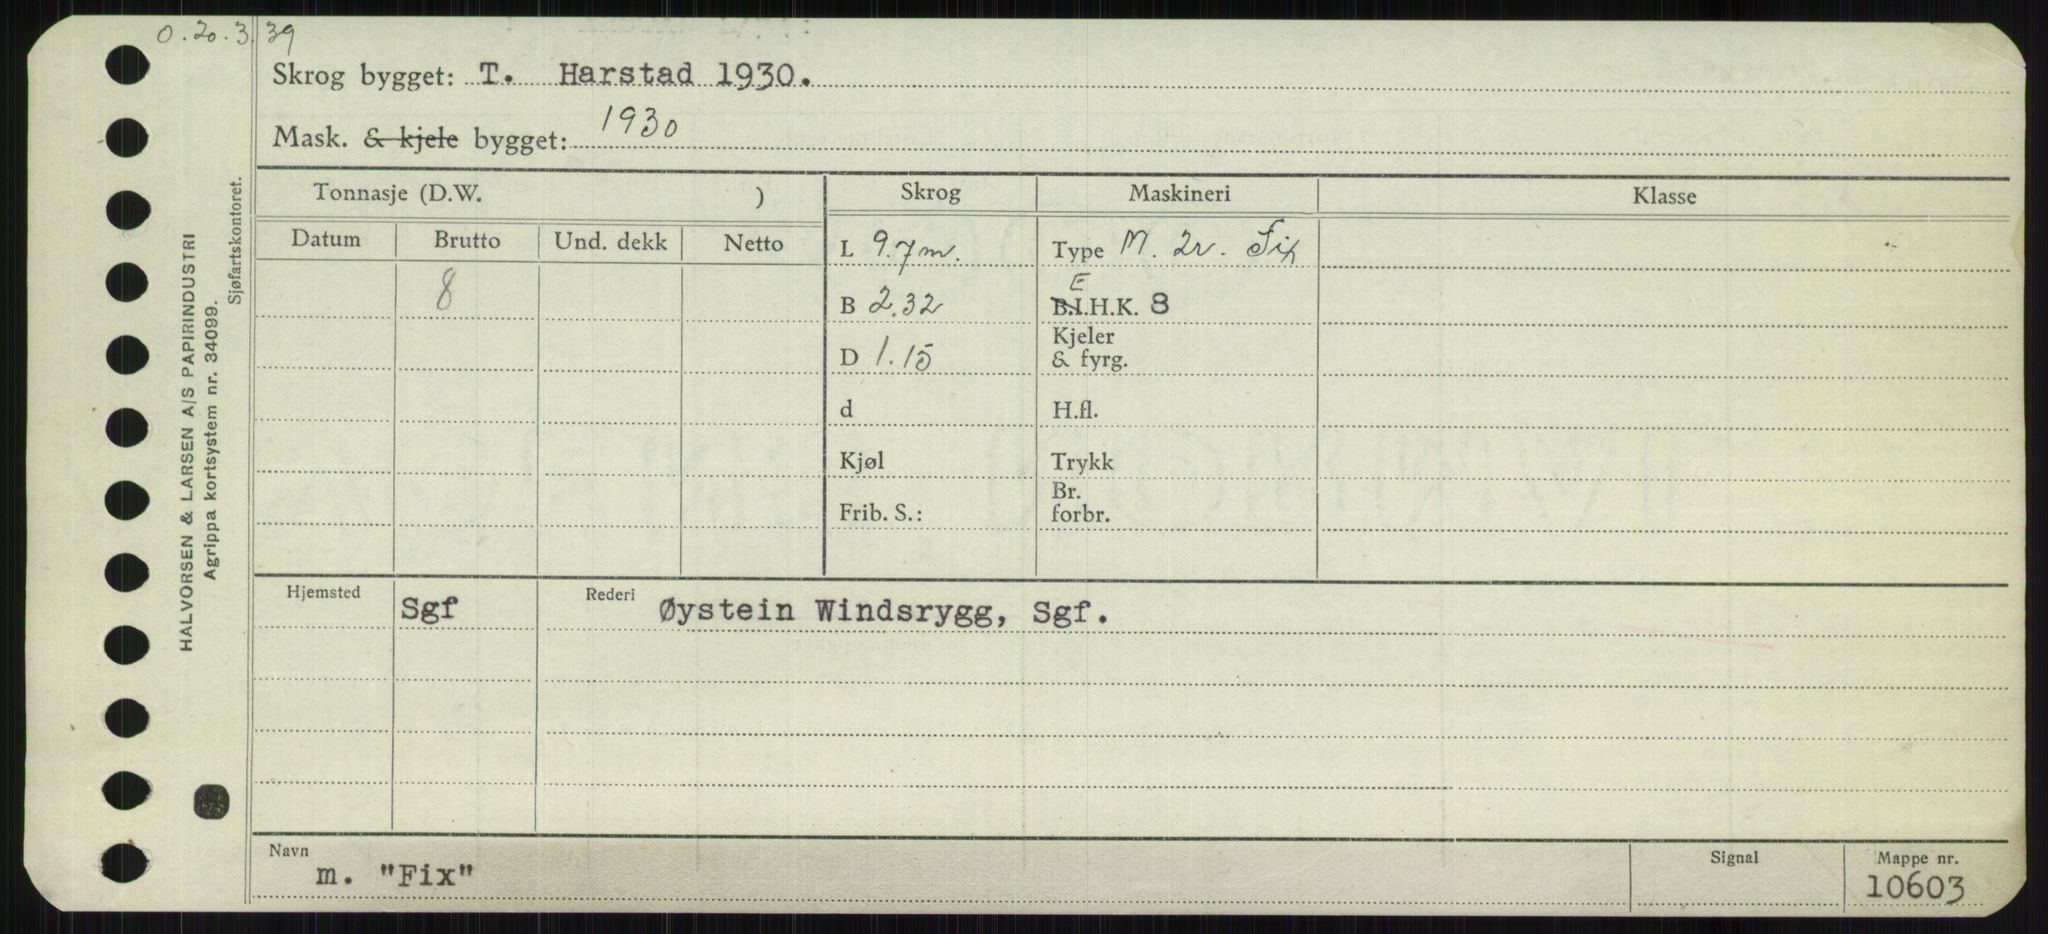 O. 20.3.39
Skrog bygget: T. Harstad 1930.
Mask. & kjele bygget: 1930
HALVORSEN & LARSEN A/S PAPIRINDUSTRI
Agrippa kortsystem nr. 34099.
Sjøfartskontoret.
Tonnasje (D.W. ) Skrog Maskineri Klasse
Datum Brutto Und. dekk Netto
L 9.7 m. Type M. 2r. Fix
8
E
B 2.32 B.I.H.K. 8
D 1.15 Kjeler & fyrg.
d H.fl.
Kjøl Trykk
Frib. S.: Br. forbr.
Hjemsted Sgf Rederi Øystein Windsrygg, Sgf.
Navn m. "Fix" Signal Mappe nr. 10603